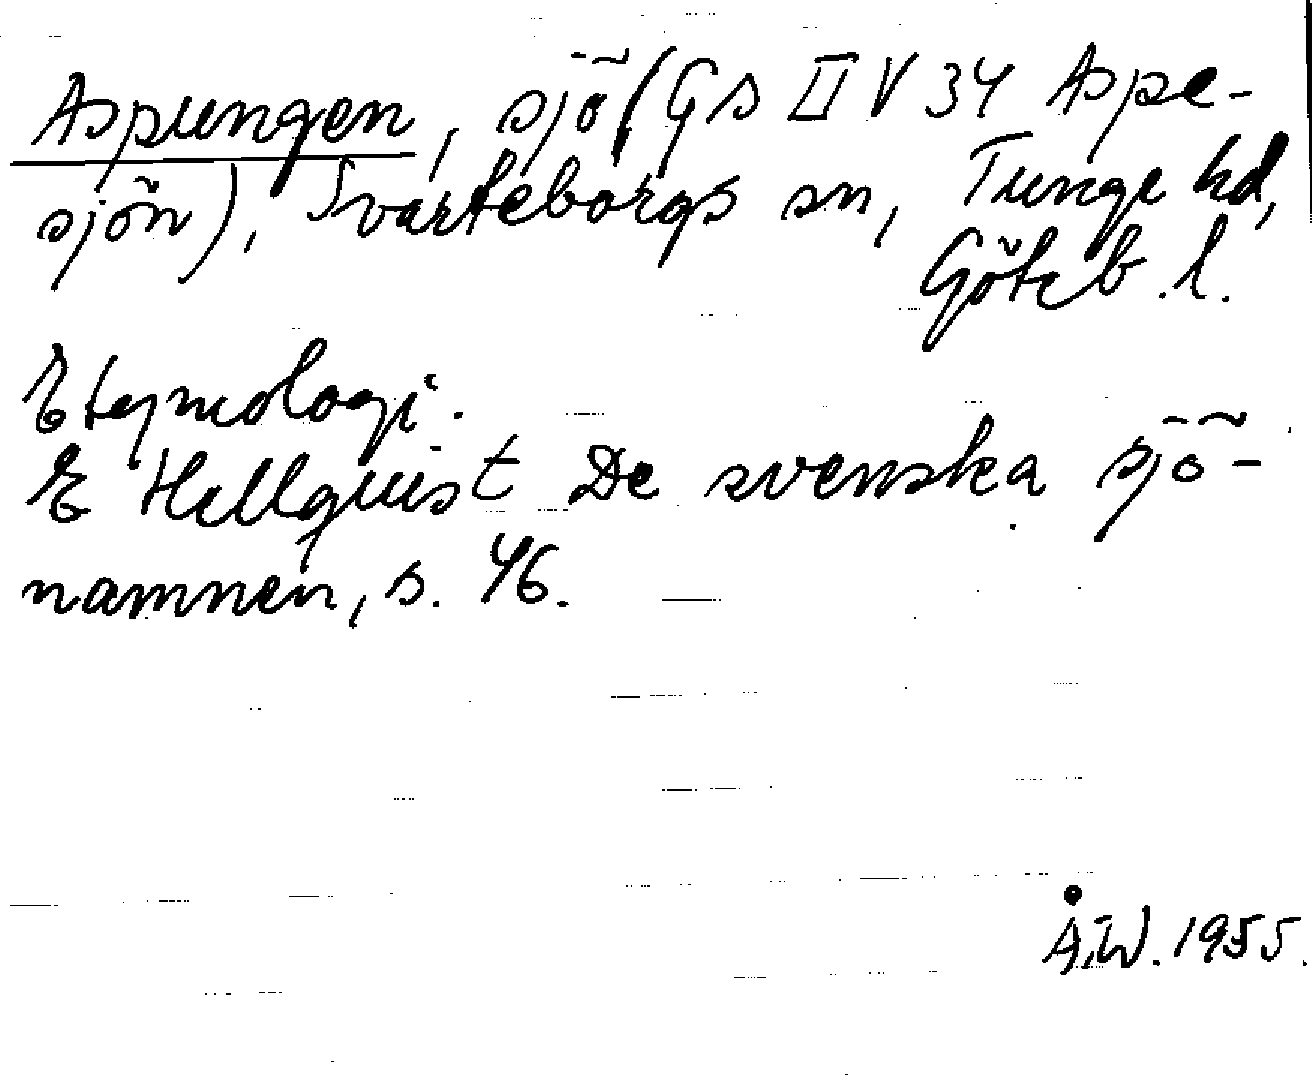 Aspungen, sjö (GS II V 34 Aspe-
sjön), Svarteborgs sn, Tunge hd,
Göteb.l.
Etymologi.
E Hellquist De svenska sjö-
namnen, s. 46.
Å.W. 1955.